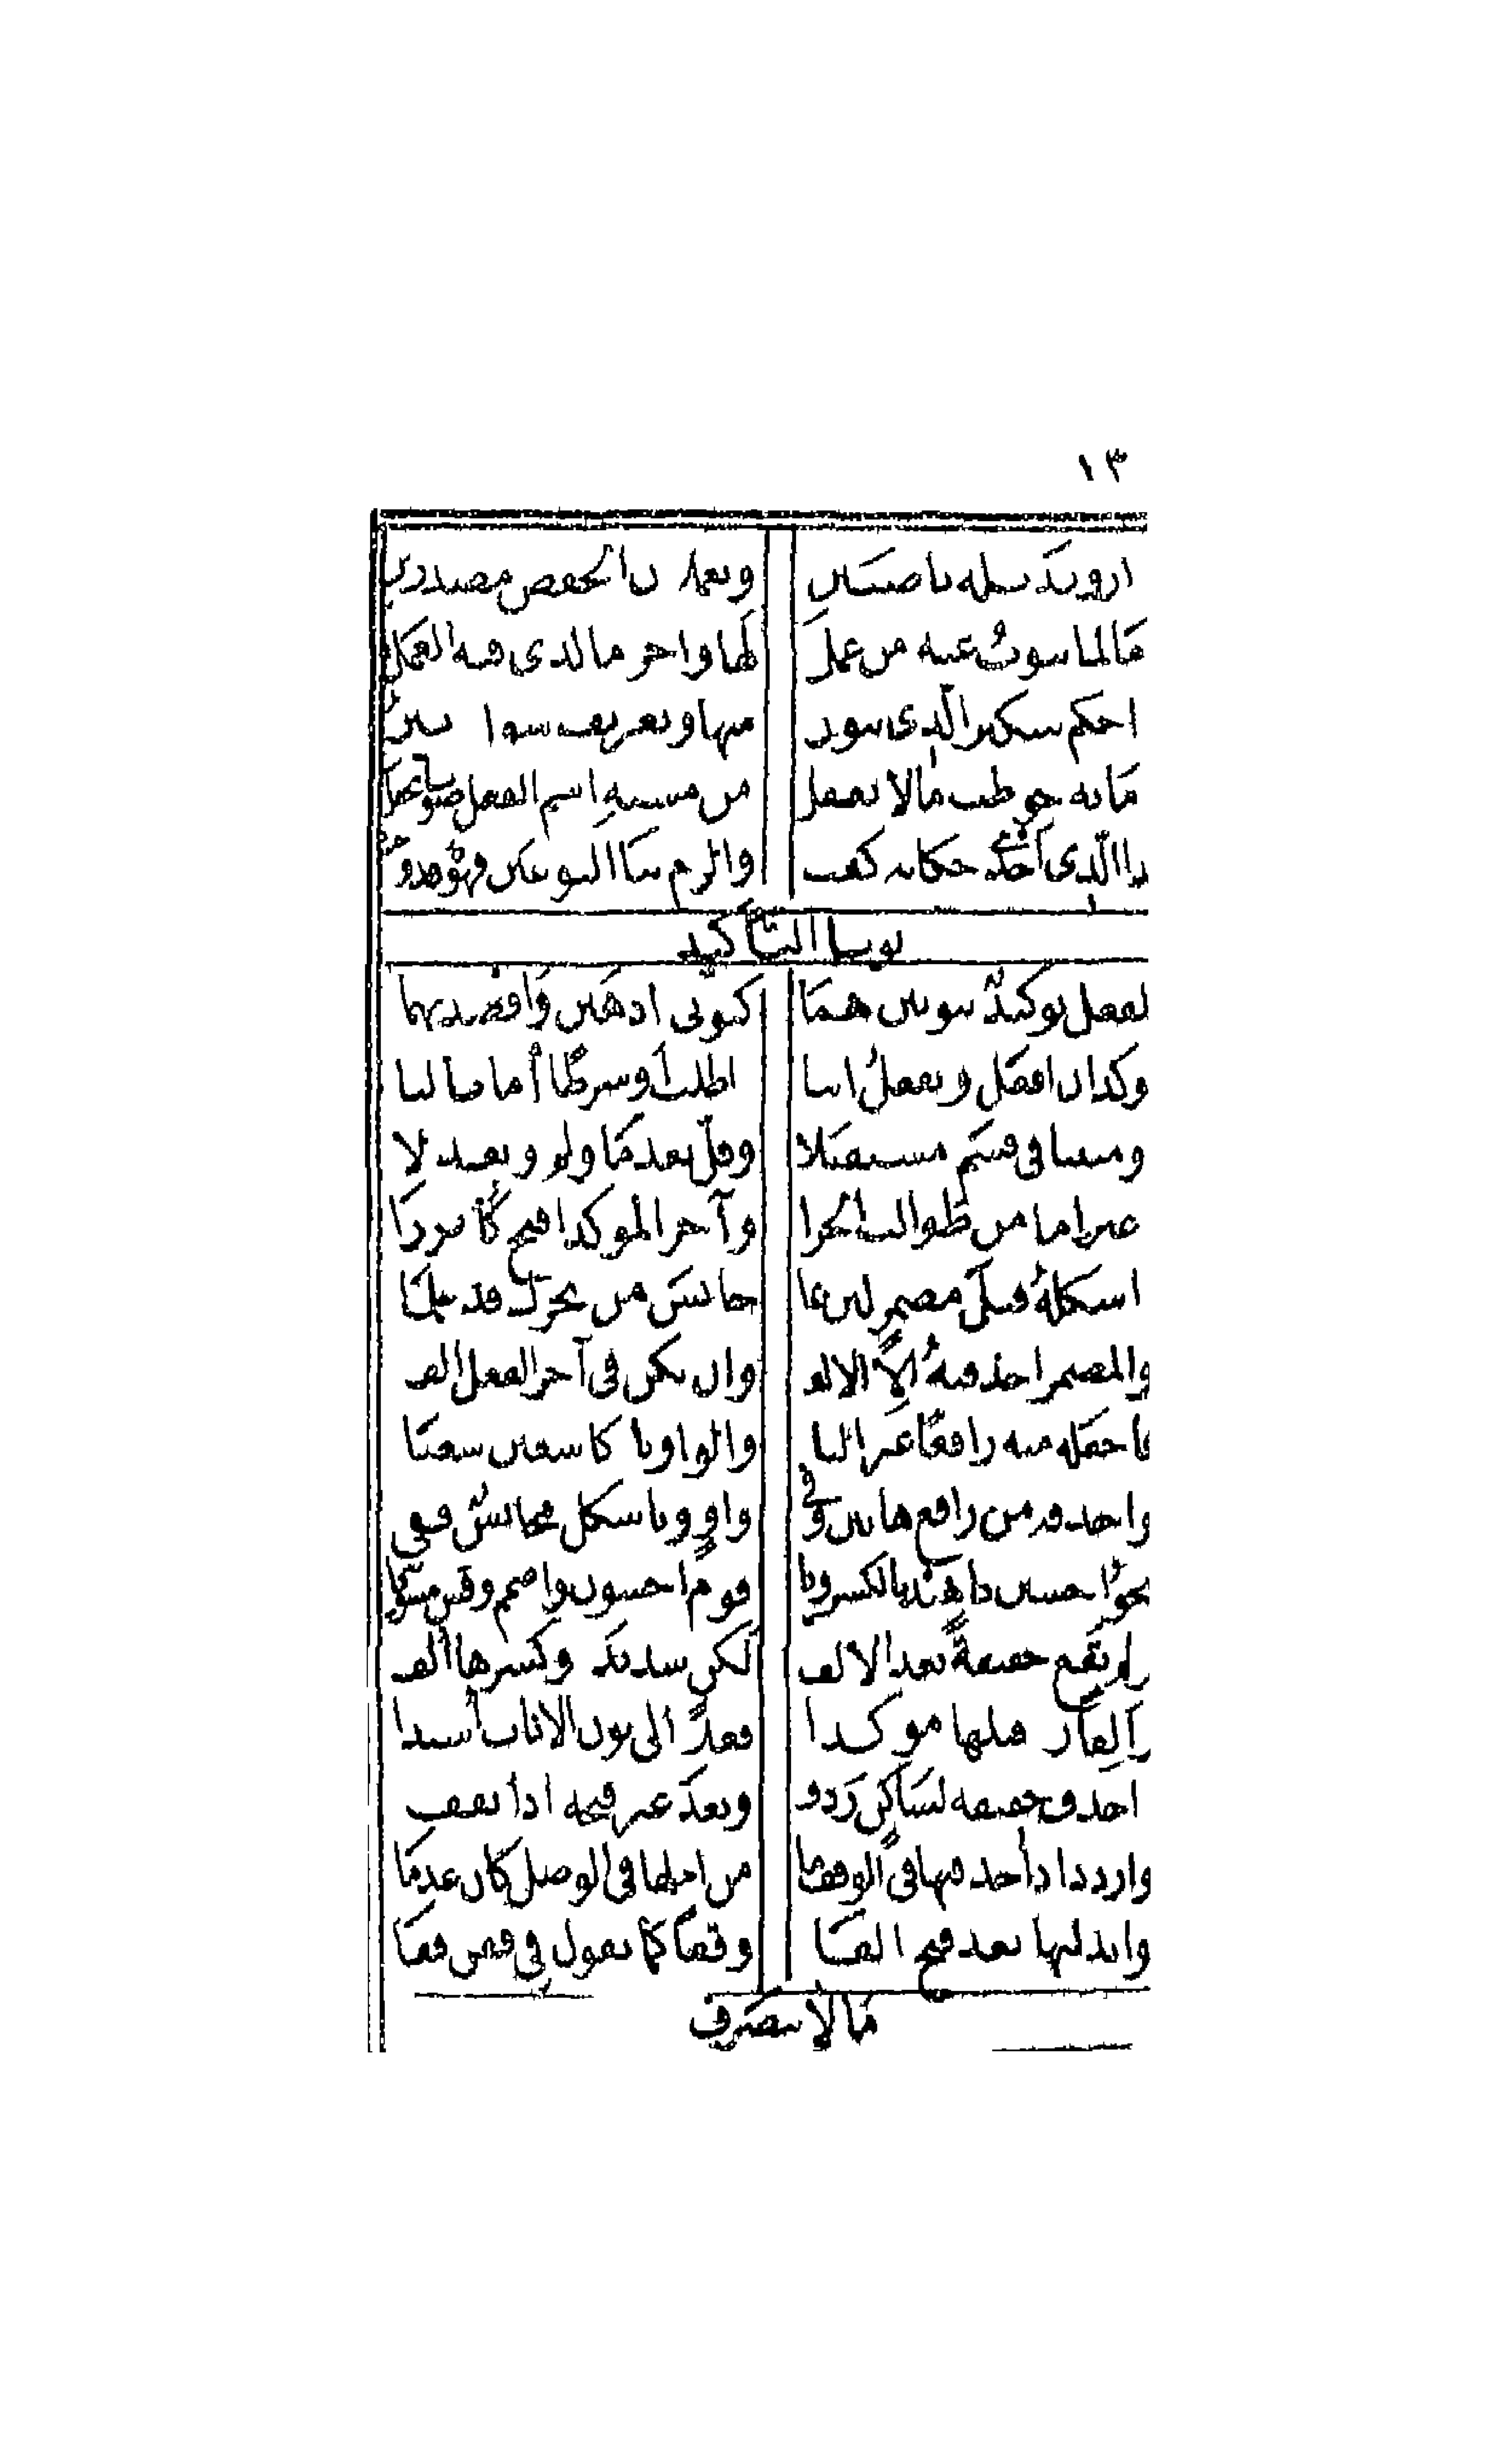 ١٣
ارويد بله ناصبين ويعملان الخفض مصدرين
وما لما تنوب عنه من عمل لها واخر ما لذي فيه العمل
احكم بتنكير الذي ينون منها وتعريف سواه بين
وما به خوطب ما لا يعقل من مشبه اسم الفعل صوتا يجعل
كذا الذي اجدى حكاية كقب والزم بنا النوعين فهو قد وجب
نونا التأكيد
للفعل توكيد بنونين هما كنوني اذهبن واقصدنهما
يوكدان افعل ويفعل اتيا ذا طلب او شرطا اما تاليا
او مثبتا في قسم مستقبلا وقل بعد ما ولم وبعد لا
وغير اما من طوالب الجزا وآخر الموكد افتح كابرزا
واشكله قبل مضمر لين بما جانس من تحرك قد علما
والمضمر احذفنه الا الالف وان يكن في آخر الفعل الف
فاجعله منه رافعا غير اليا والواو يا كاسعين سعيا
واحذفه من رافع هاتين وفي واو ويا شكل مجانس قفي
نحو اخشين يا هند بالكسر ويا قوم اخشون واضمم وقس مسويا
ولم تقع خفيفة بعد الالف لكن شديدة وكسرها الف
والفا زد قبلها موكدا فعلا الى نون الاناث اسندا
واحذف خفيفة لساكن ردف وبعد غير فتحة اذا تقف
واردد اذا حذفتها في الوقف ما من اجلها في الوصل كان عدما
وابدلنها بعد فتح الفا وقفا كما تقول في قفن قفا
ما لا ينصرف